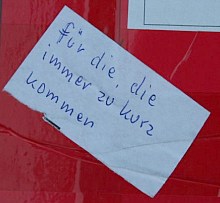 für die, die
immer zu kurz
kommen